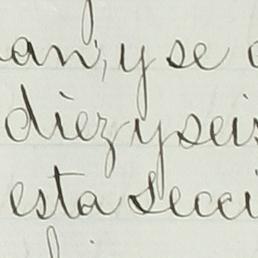 an, y se
diez y seis
esta Secci